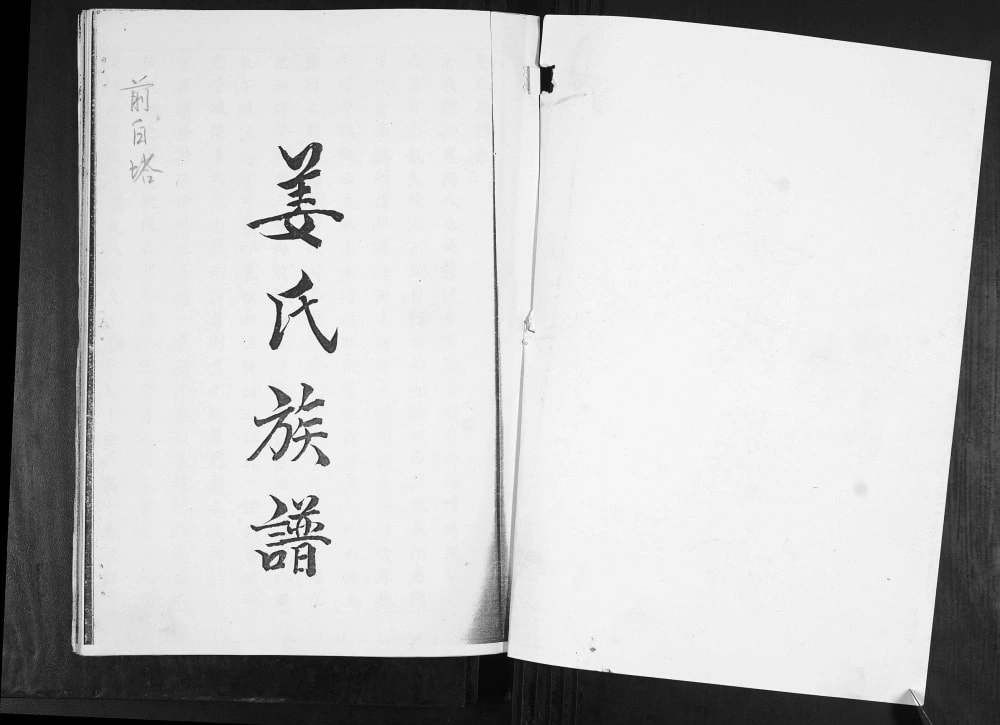 姜氏族譜
前白塔